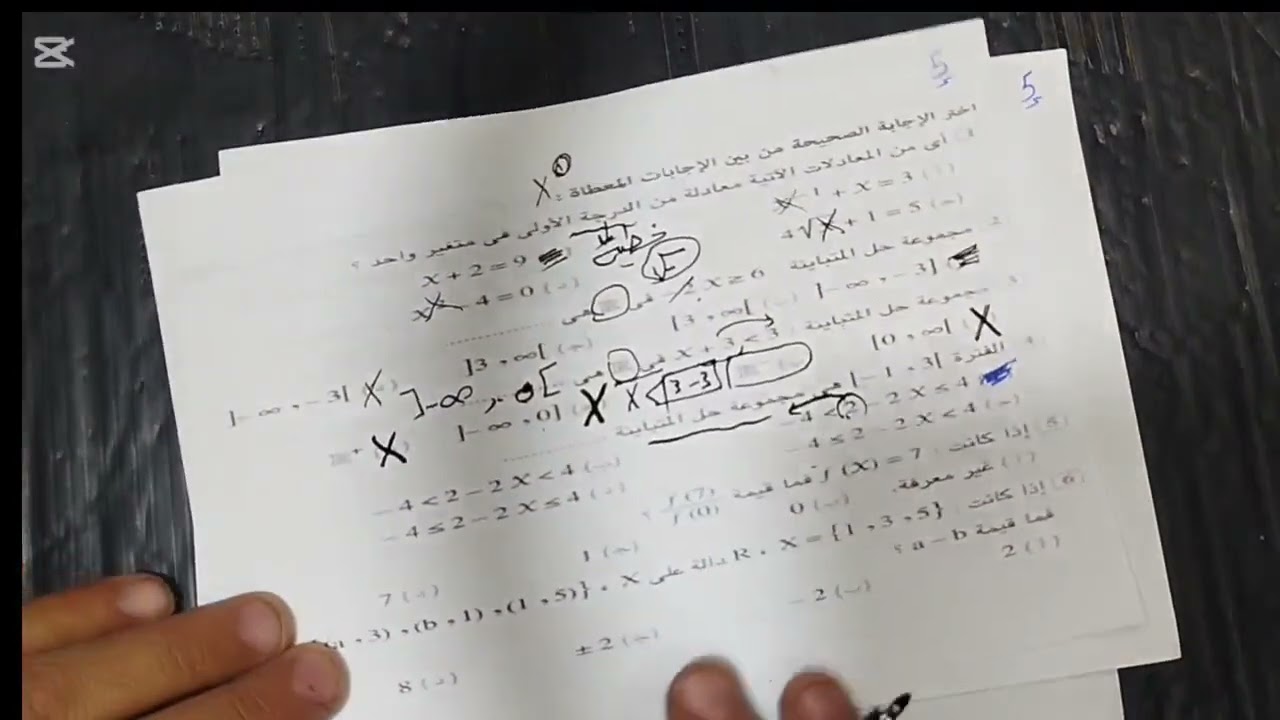 5
5
اختر الإجابة الصحيحة من بين الإجابات المعطاة :
X
أى من المعادلات الآتية معادلة من الدرجة الأولى فى متغير واحد ؟
1 + x = 3
x + 2 = 9
4√x + 1 = 5 (ج)
4 = 0 (د)
2 مجموعة حل المتباينة X ≥ 6 فى هى
]−∞ , −3]
[3 , ∞[
]3 , ∞[ (ج)
]−∞ , −3[ X
3 مجموعة حل المتباينة : X + 3 < 3 فى هى
[0 , ∞[ X
]−∞ , 0] X
X < 3 − 3
]−∞ , 0[
X
4 الفترة [−1 , 3[ هى مجموعة حل المتباينة
−4 < 2 − 2 X ≤ 4
−4 < 2 − 2 X < 4
−4 ≤ 2 − 2 X < 4 (ج)
−4 ≤ 2 − 2 X ≤ 4 (د)
(5) إذا كانت : f (X) = 7 فما قيمة f (7) / f (0) ؟
(أ) غير معرفة.
0 (ب)
1 (ج)
7 (د)
(6) إذا كانت : X = {1 , 3 , 5} , R دالة على X , (a , 3) , (b , 1) , (1 , 5)}
فما قيمة a − b ؟
2 (أ)
− 2 (ب)
± 2 (ج)
8 (د)